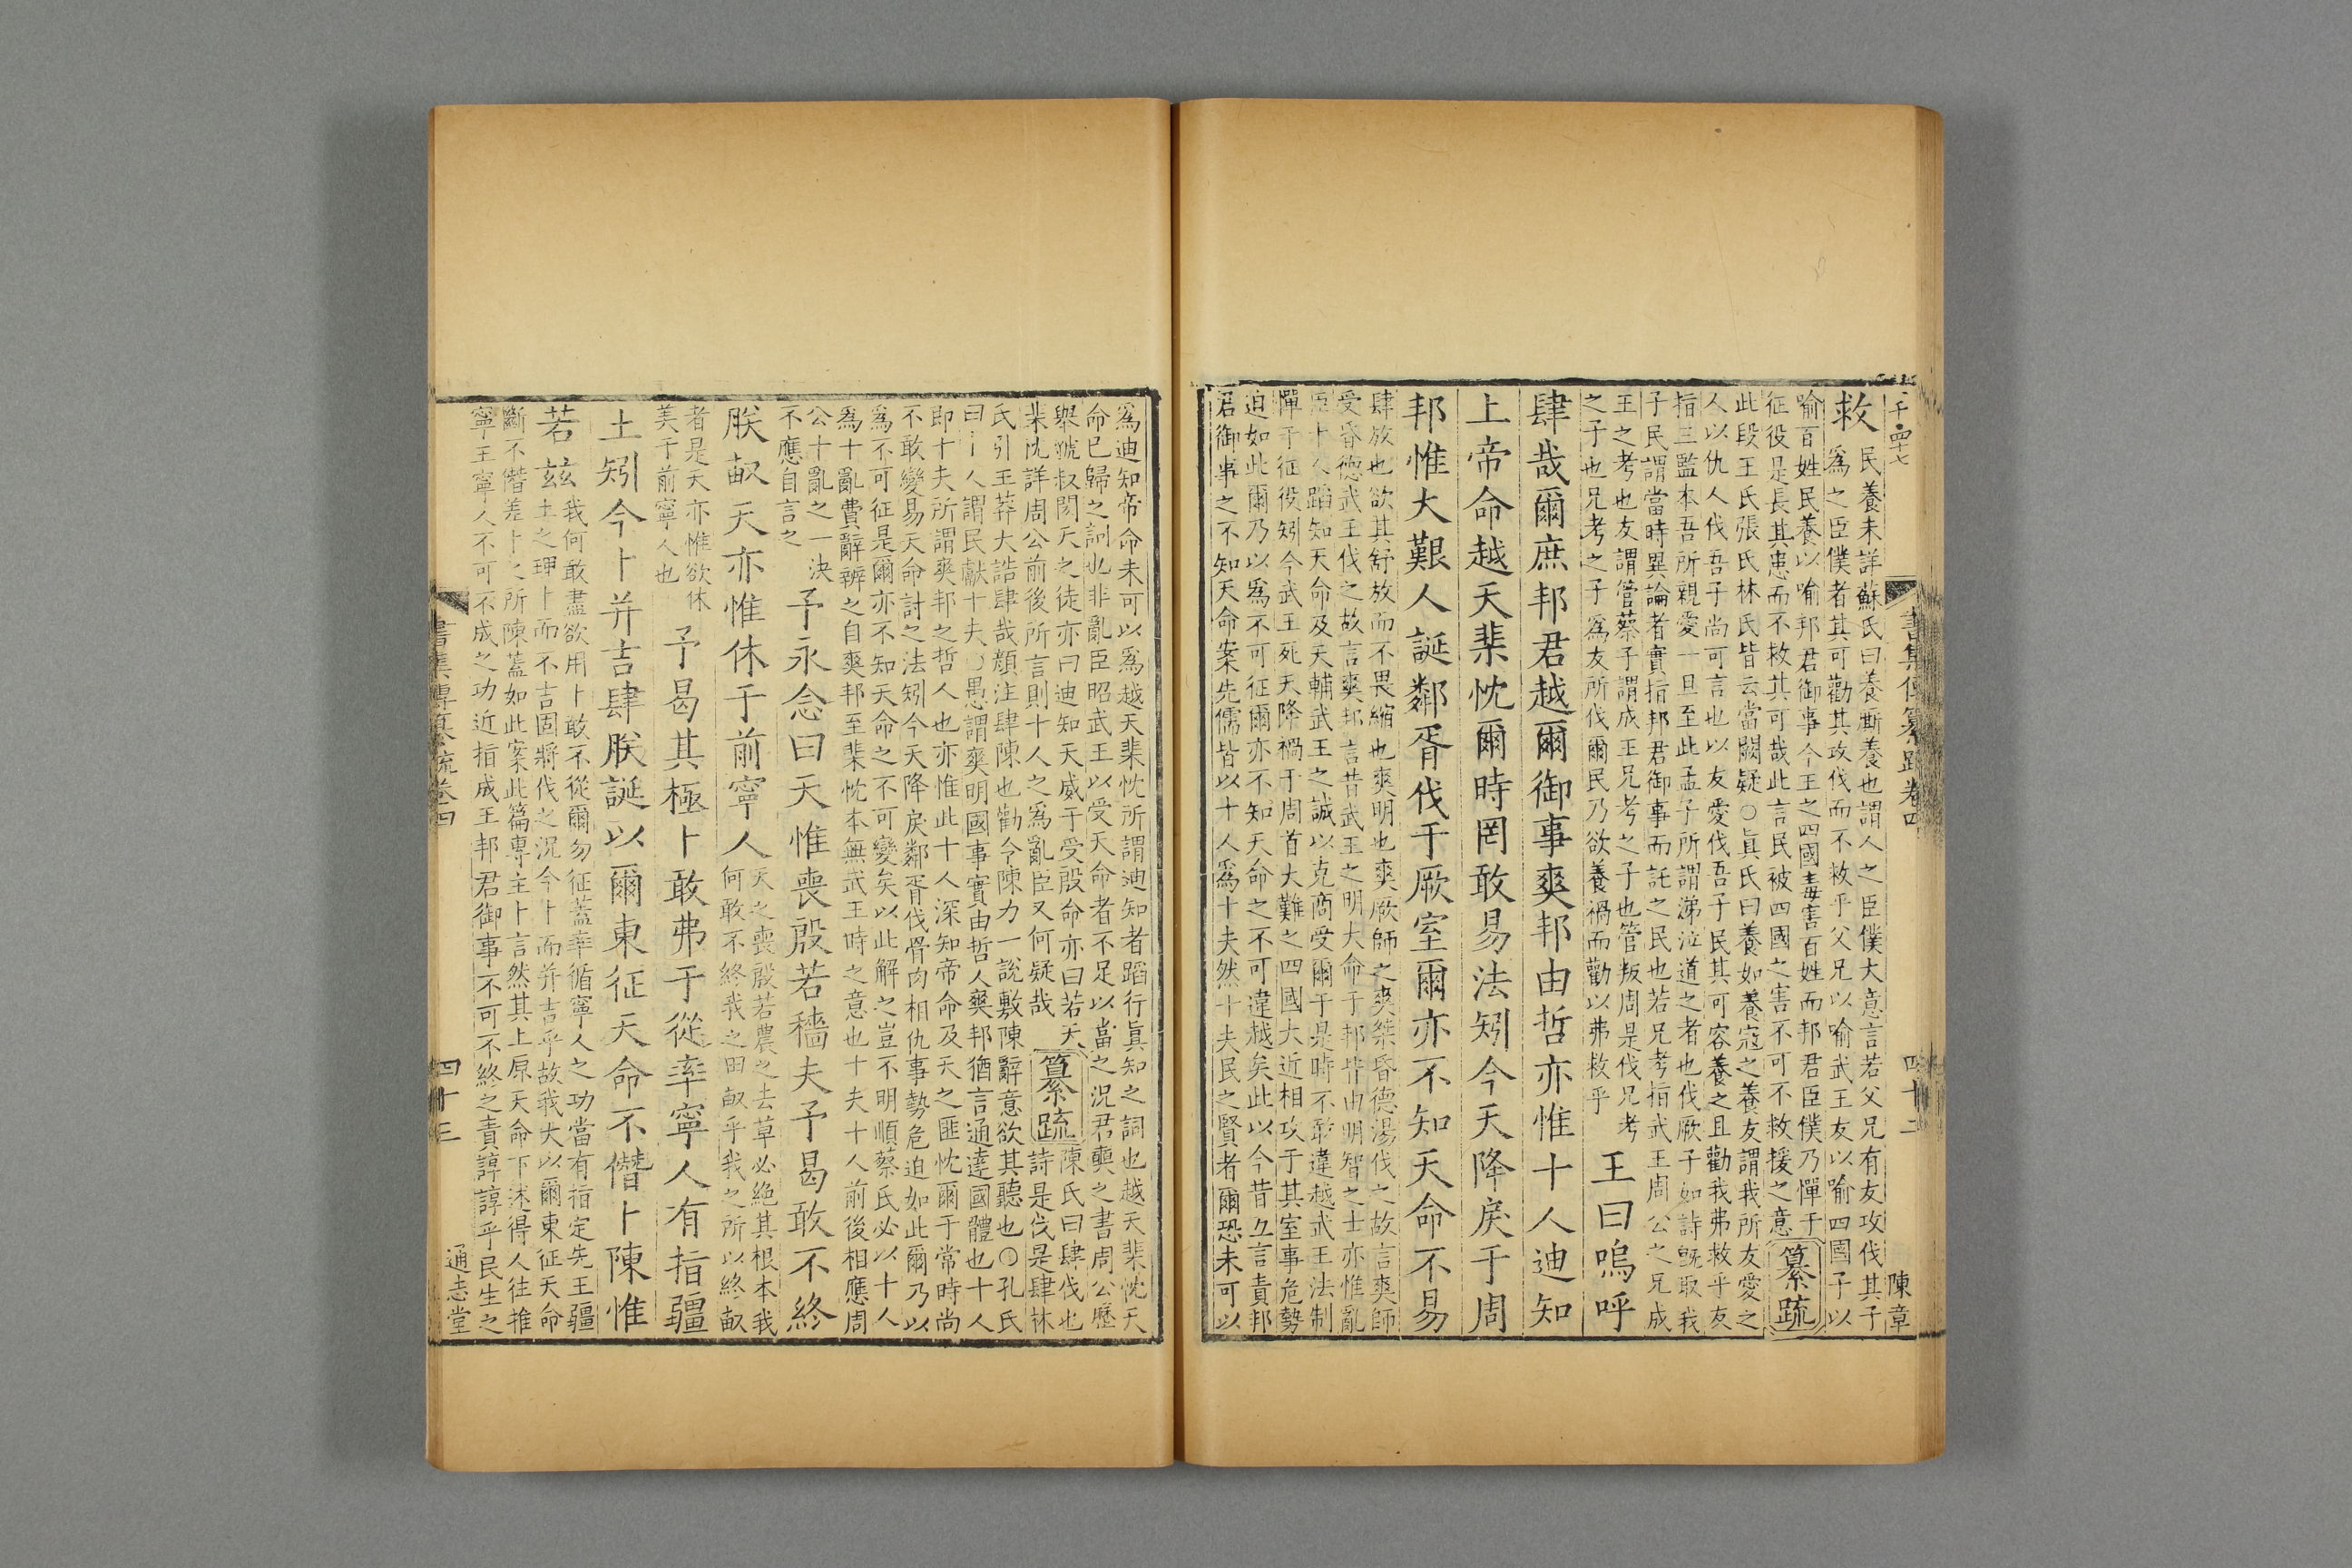 救
民養未詳蘇氏曰養厮養也謂人之臣僕大意言若父兄有友攻伐其子
爲之臣僕者其可勸其攻伐而不救乎父兄以喻武王友以喻四國子以
喻百姓民養以喻邦君御事今王之四國毒害百姓而邦君臣僕乃憚于
征役是長其患而不救其可哉此言民被四國之害不可不救援之意
纂疏
此段王氏張氏林氏皆云當闕疑○眞氏曰養如養寇之養友謂我所友愛之
人以仇人伐吾子尚可言也以友愛伐吾子民其可容養之且勸我弗救乎友
指三監本吾所親愛一旦至此孟子所謂涕泣道之者也伐厥子如詩旣取我
子民謂當時異論者實指邦君御事而託之民也若兄考指武王周公之兄成
王之考也友謂管蔡子謂成王兄考之子也管叛周是伐兄考
之子也兄考之子爲友所伐爾民乃欲養禍而勸以弗救乎
王曰嗚呼
肆哉爾庶邦君越爾御事爽邦由哲亦惟十人迪知
上帝命越天棐忱爾時罔敢易法矧今天降戾于周
邦惟大艱人誕鄰胥伐于厥室爾亦不知天命不易
肆放也欲其舒放而不畏縮也爽明也爽厥師之爽桀昏德湯伐之故言爽師
受昏德武王伐之故言爽邦言昔武王之明大命于邦皆由明智之士亦惟亂
臣十人蹈知天命及天輔武王之誠以克商受爾于是時不敢違越武王法制
憚于征役矧今武王死天降禍于周首大難之四國大近相攻于其室事危勢
迫如此爾乃以爲不可征爾亦不知天命之不可違越矣此以今昔互言責邦
君御事之不知天命案先儒皆以十人爲十夫然十夫民之賢者爾恐未可以
書集傳纂疏卷四
四十二
陳章
爲迪知帝命未可以爲越天棐忱所謂迪知者蹈行眞知之詞也越天棐忱天
命已歸之詞也非亂臣昭武王以受天命者不足以當之況君奭之書周公歷
舉虢叔閎夭之徒亦曰迪知天威于受殷命亦曰若天
棐忱詳周公前後所言則十人之爲亂臣又何疑哉
纂疏
陳氏曰肆伐也
詩是伐是肆林
氏引王莽大誥肆哉顏注肆陳也勸今陳力一說敷陳辭意欲其聽也○孔氏
曰十人謂民獻十夫○愚謂爽明國事實由哲人爽邦猶言通達國體也十人
即十夫所謂爽邦之哲人也亦惟此十人深知帝命及天之匪忱爾于常時尚
不敢變易天命討之法矧今天降戾鄰胥伐骨肉相仇事勢危迫如此爾乃以
爲不可征是爾亦不知天命之不可變矣以此解之豈不明順蔡氏必以十人
爲十亂費辭辨之自爽邦至棐忱本無武王時之意也十夫十人前後相應周
公十亂之一決
不應自言之
予永念曰天惟喪殷若穡夫予曷敢不終
朕畝天亦惟休于前寧人
天之喪殷若農之去草必絕其根本我
何敢不終我之田畝乎我之所以終畝
者是天亦惟欲休
美于前寧人也
予曷其極卜敢弗于從率寧人有指疆
土矧今卜并吉肆朕誕以爾東征天命不僭卜陳惟
若玆
我何敢盡欲用卜敢不從爾勿征蓋率循寧人之功當有指定先王疆
土之理卜而不吉固將伐之況今卜而并吉乎故我大以爾東征天命
斷不僭差卜之所陳蓋如此案此篇專主卜言然其上原天命下述得人往推
寧王寧人不可不成之功近指成王邦君御事不可不終之責諄諄乎民生之
書集傳纂疏卷四
四十三
通志堂